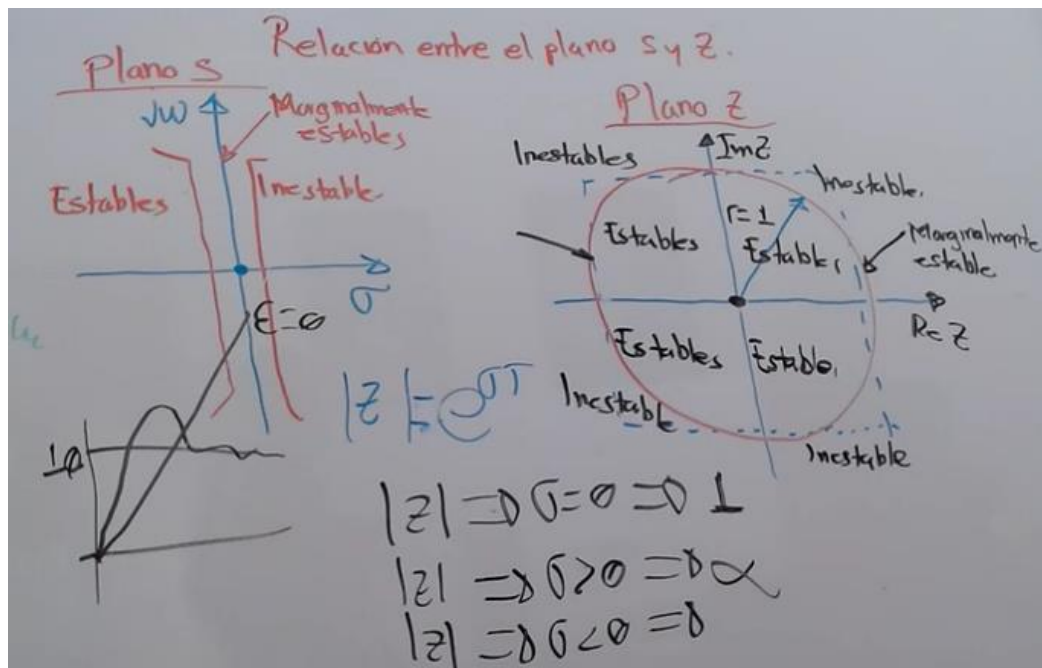 Relación entre el plano S y Z.
Plano S
jω
Marginalmente
estables
Estables
Inestable
σ
ξ=0
10
Plano Z
Im Z
Inestables
Inestable.
r=1
Estables
Estables
Marginalmente
estable
Re Z
Estables
Estable.
Inestable
Inestable
|Z|=e^σT
|z| ⇒ σ=0 ⇒ 1
|z| ⇒ σ>0 ⇒ α
|z| ⇒ σ<0 ⇒